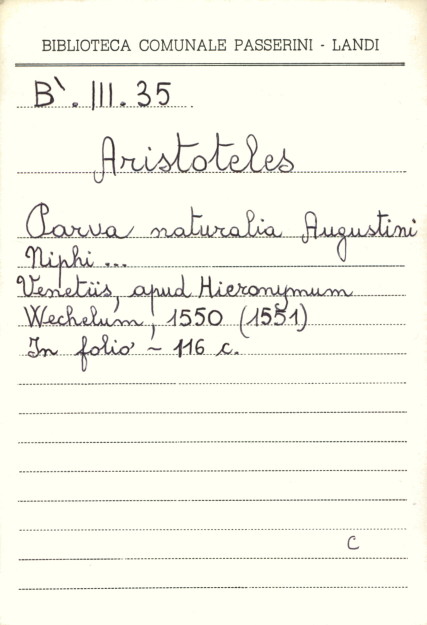 BIBLIOTECA COMUNALE PASSERINI - LANDI
B`. III. 35
Aristoteles
Parva naturalia Augustini
Niphi ...
Venetiis, apud Hieronymum
Wechelum, 1550 (1551)
In folio - 116 c.
C